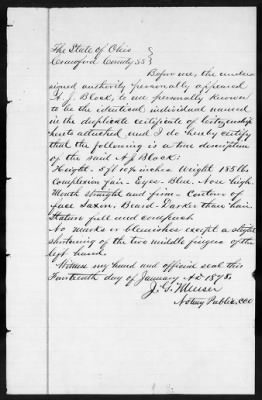 The State of Ohio
Crawford County SS
Before me, the under-
signed authority personally appeared
A. J. Block, to me personally known
to be the identical individual named
in the duplicate certificate of Citizenship
hereto attached and I do hereby certify
that the following is a true description
of the said A. J. Block:
Height - 5 ft 10½ inches. Weight 185 lbs.
Complexion fair - Eyes - Blue. Nose High
Mouth straight and firm - Contour of
face Saxon. Beard - Darker than hair.
Stature full and compact.
No marks or blemishes except a slight
shortening of the two middle fingers of the
left hand.
Witness my hand and official seal this
Fourteenth day of January A.D. 1878.
Notary Public, CCO